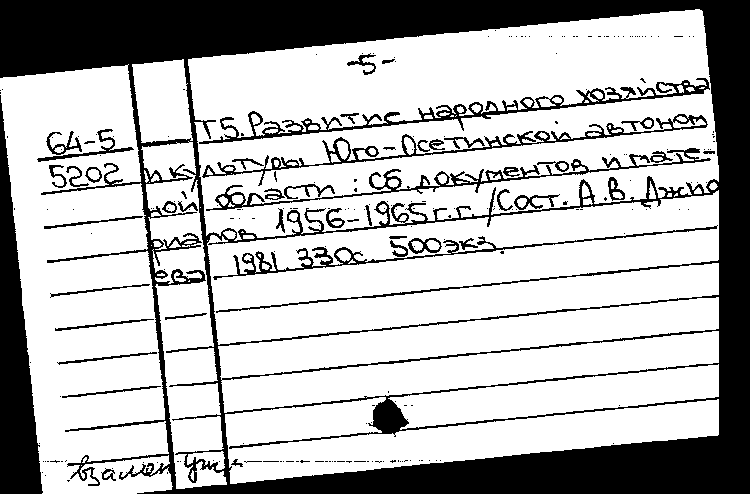 -5-
64-5 Т.5. Развитие народного хозяйства
5202 и культуры Юго-Осетинской автоном
ной области : Сб. документов и мате-
риалов 1956-1965 г.г. /Сост. А.В. Джио
ева. 1981. 330с. 500экз.
взамен утер